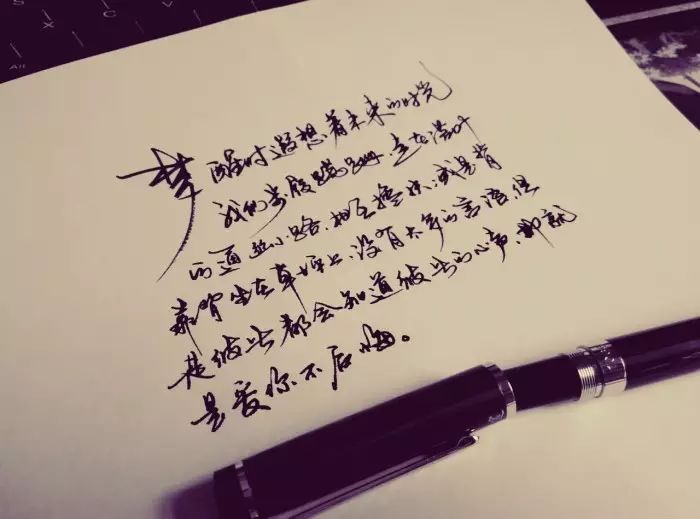 梦醒时遥想着未来的时光
我们步履蹒跚,走在落叶
的通幽小路,相互搀扶,或是背
靠背坐在草坪上,没有太多的言语但
是彼此都会知道彼此的心声,那就
是爱你不后悔。